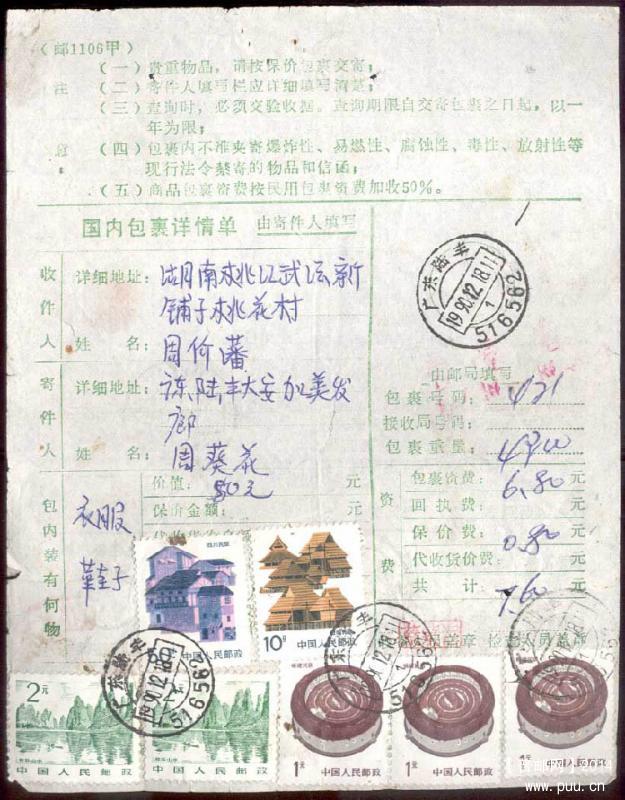 (邮1106甲)
(一) 贵重物品，请按保价包裹交寄；
注 (二) 寄件人填写栏应详细填写清楚；
(三) 查询时，必须交验收据。查询期限自交寄包裹之日起，以一
年为限；
意 (四) 包裹内不准夹寄爆炸性、易燃性、腐蚀性、毒性、放射性等
现行法令禁寄的物品和信函；
(五) 商品包裹资费按民用包裹资费加收50%。
国内包裹详情单 由寄件人填写
收件人
详细地址：湖南桃江武潭新
铺子桃花村
姓名：周价藩
寄件人
详细地址：广东陆丰大安加美发
廊
姓名：周葵花
包内装有何物
衣服
鞋子
价值：80元 元
保价金额： 元
广东陆丰
1990.12.18.11
1
516562
由邮局填写
包裹号码：421
接收局号码：
包裹重量：4900
资费
包裹资费：6.80元
回执费： 元
保价费：0.80元
代收货价费： 元
共计 7.60元
四川民居
中国人民邮政
10分
中国人民邮政
广东陆丰
1990.12.18.11
516562
广东陆丰
12.18.11
2元
中国人民邮政
中国人民邮政
福建民居
1元 中国人民邮政
1元 中国人民邮政
1元 中国人民邮政
www.puu.cn